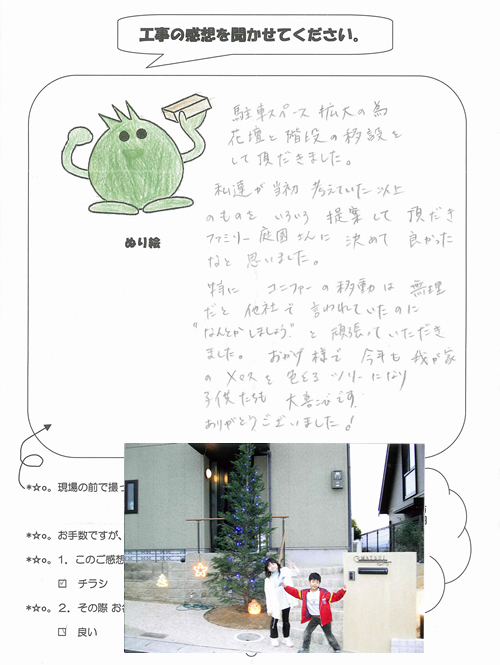 工事の感想を聞かせてください。
駐車スペース拡大の為
花壇と階段の移設を
して頂だきました。
私達が当初考えていた以上
のものをいろいろ提案して頂だき
ファミリー庭園さんに決めて良かった
なと思いました。
特にコニファーの移動は無理
だと他社で言われていたのに
"なんとかしましょう"と頑張っていただき
ました。おかげ様で今年も我が家
のXマスを色どるツリーになり
子供たちも大喜びです。
ありがとうございました!
ぬり絵
*☆o。現場の前で撮っ
*☆o。お手数ですが、
*☆o。1．このご感想
☑ チラシ
*☆o。2．その際 お
☑ 良い